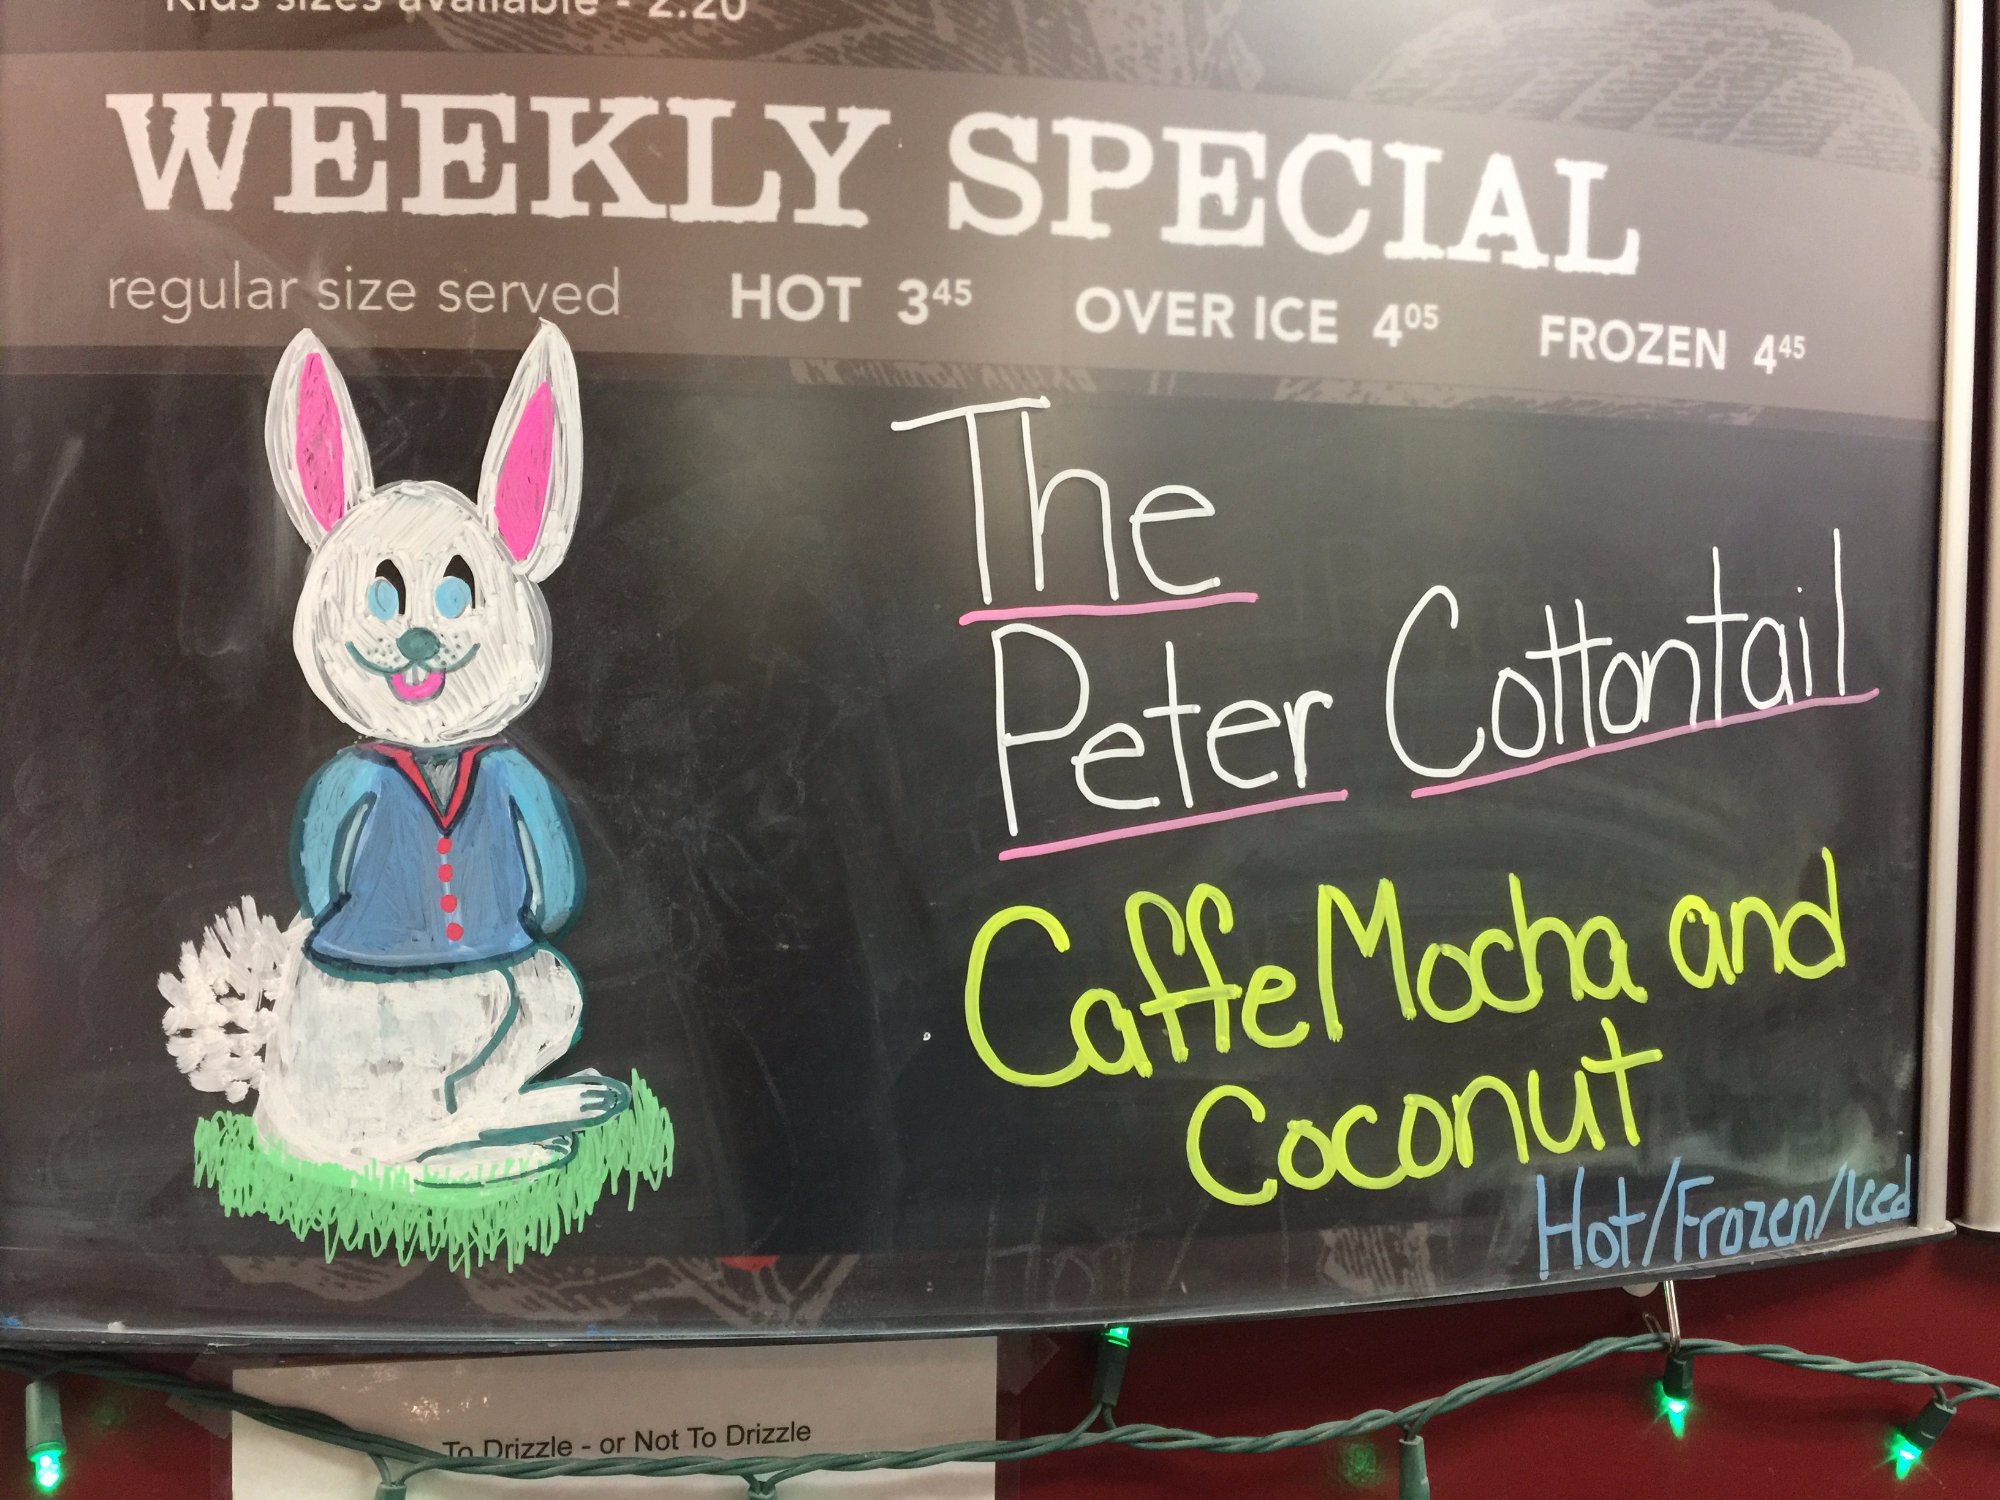 Kids sizes available - 2.20
WEEKLY SPECIAL
regular size served HOT 3 45 OVER ICE 4 05 FROZEN 4 45
The
Peter Cottontail
Caffe Mocha and
Coconut
Hot/Frozen/Iced
To Drizzle - or Not To Drizzle